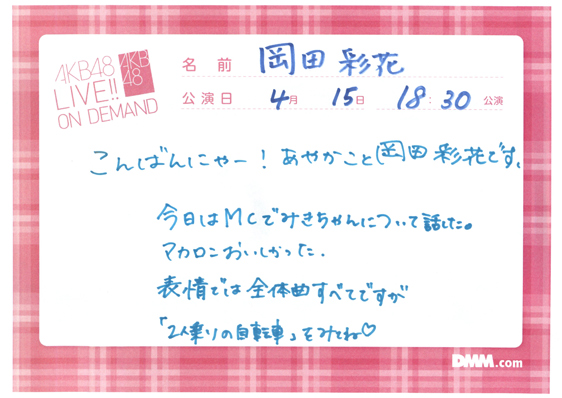 AKB48
LIVE!!
ON DEMAND
AKB
48
名前 岡田彩花
公演日 4月 15日 18:30 公演
こんばんにゃー！あやかこと岡田彩花です。
今日はMCでみきちゃんについて話した。
マカロンおいしかった.
表情では全体曲すべてですが
「2人乗りの自転車」をみてね♡
DMM.com